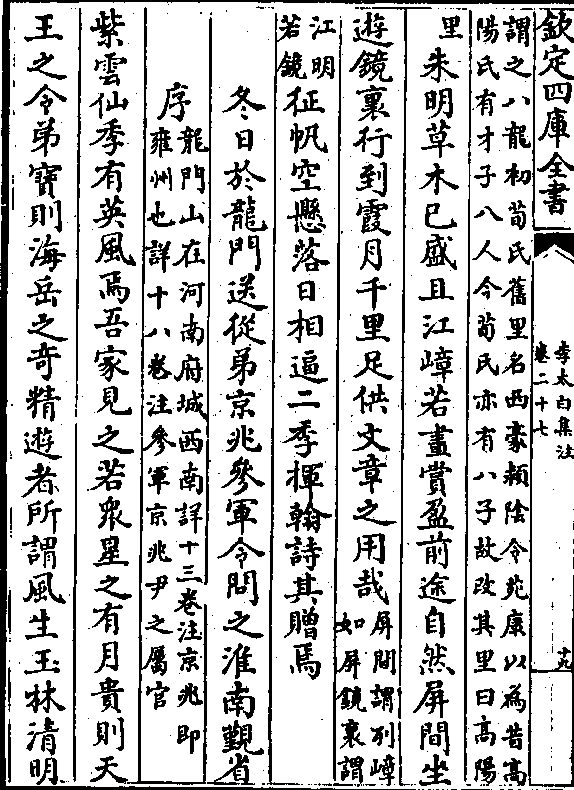 欽定四庫全書
李太白集注
卷二十七
十九
謂之八龍初荀氏舊里名西豪頴陰令苑康以為昔高
陽氏有才子八人今荀氏亦有八子故改其里曰高陽
里
朱明草木已盛且江嶂若畫賞盈前途自然屏間坐
遊鏡裏行到霞月千里足供文章之用哉
屏間謂列嶂
如屏鏡裏謂
江明
若鏡
征帆空懸落日相逼二季揮翰詩其贈焉
冬日於龍門送從弟京兆參軍令問之淮南覲省
序
龍門山在河南府城西南詳十三卷注京兆即
雍州也詳十八卷注參軍京兆尹之屬官
紫雲仙季有英風焉吾家見之若衆星之有月貴則天
王之令弟寶則海岳之奇精遊者所謂風生玉林清明